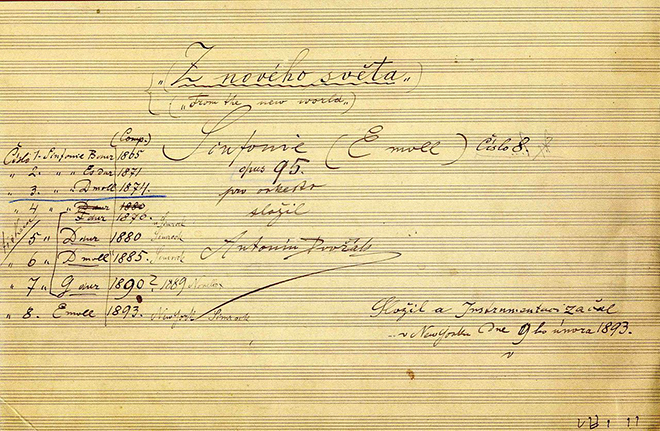 „Z nového světa“
(„From the new world“)
Sinfonie (E moll) Číslo 8.
opus 95.
pro orkestr
složil
Antonín Dvořák
(Comp.)
Číslo 1. Sinfonie B dur 1865
„ 2. „ „ Es dur 1871
„ 3. „ „ D moll 1874.
„ 4 „ „ D dur 1880
F dur 1870. Simrock
5 „ D dur 1880 Simrock
„ 6 „ D moll 1885. Simrock
„ 7 „ G dur 1890? 1889 Novello
„ 8. E moll 1893. New York Simrock
Složil a Instrumentaci začal
v New Yorku Dne 9ho února 1893.